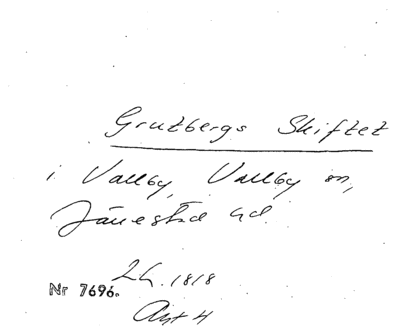 Grutbergs Skiftet
i Vallby, Vallby sn,
Järrestad hd.
24. 1818
Nr 7696.
Akt 4